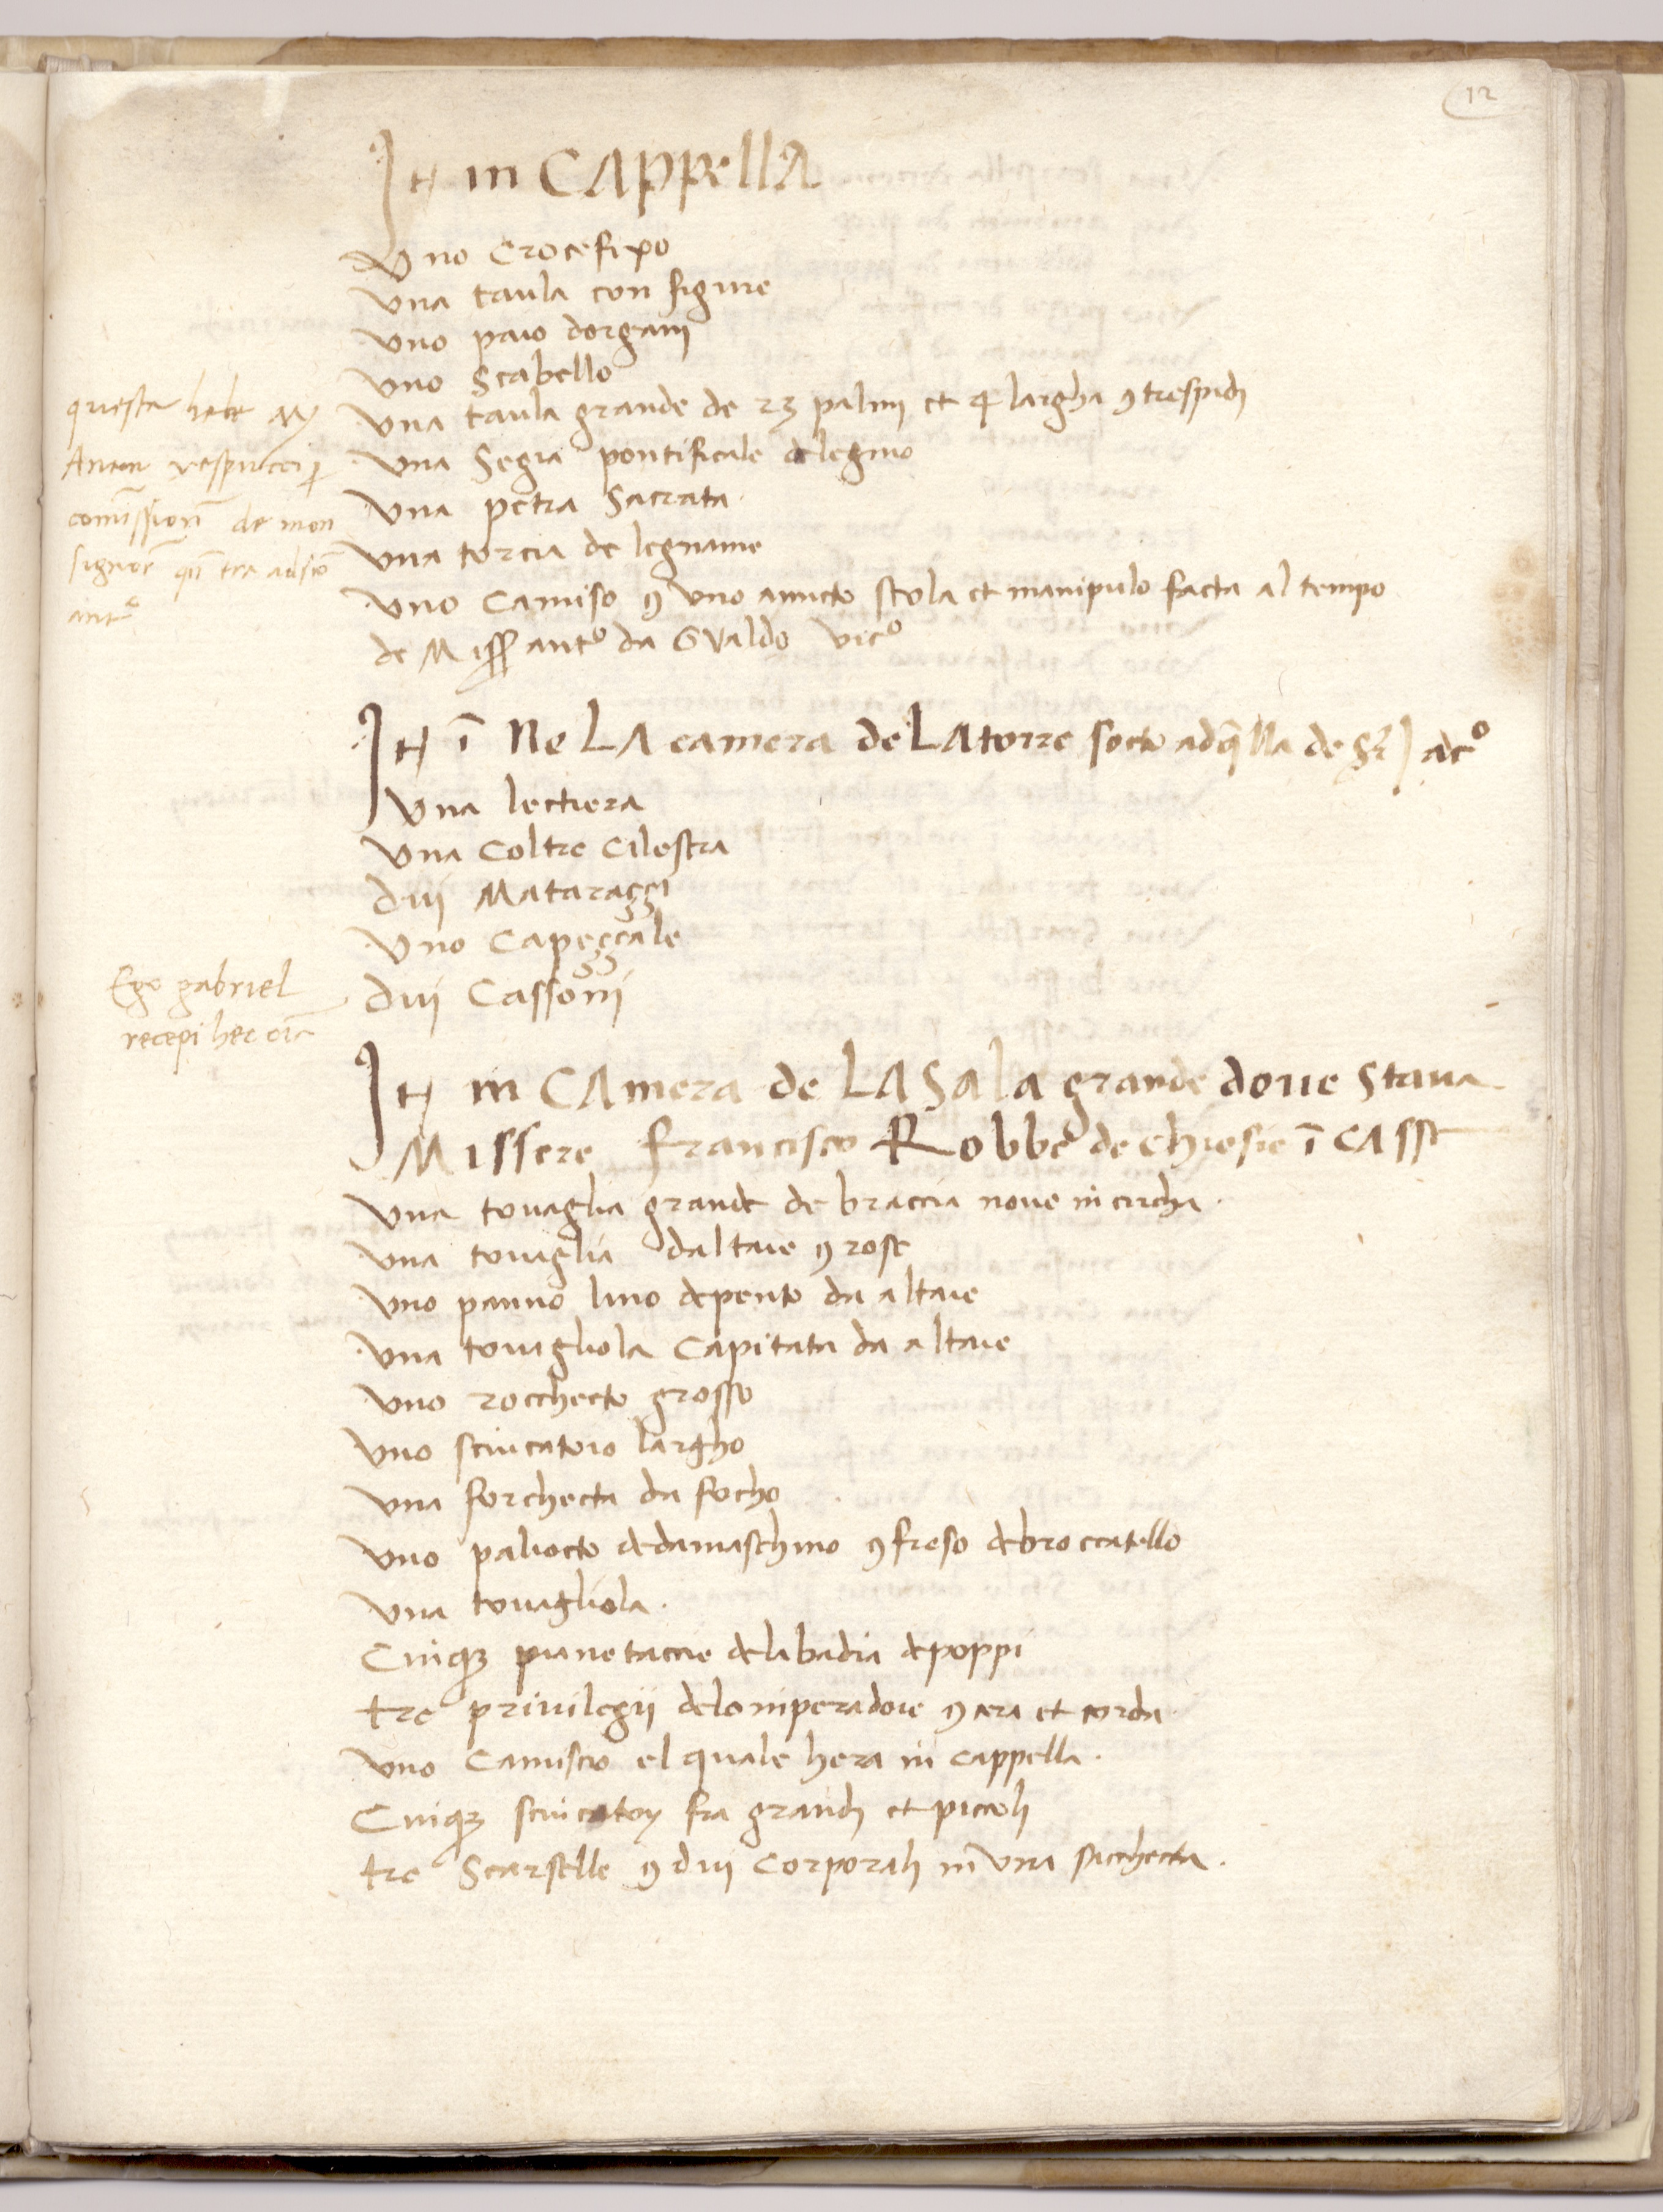 12
It in CAppellA
Uno Crocefixo
Una taula con figure
Uno paio dorgani
Uno Scabello
Una taula grande de 23 palmi et 4 largha 9 trespidi
Una Segia pontificale de legnio
Una petra Sacrata
Una torcia de legname
Uno Camiso 9 uno amicto stola et manipulo facta al tempo
de Miss antº da Gualdo vicº
questa hebe M
Anton vespucci p
comissiōn de mon
signor qn̄
antº
It ī Ne LA camera de LA torre socto adq̄lla de Sr Jacº
Una lectiera
Una Coltre Cilestra
Dui Mataraççi
Uno Capeççale
Dui Cassoni
Ego gabriel
recepi hec oīa
It in CAmera de LA Sala grande doue Staua
Missere francisco Robbe de chiesie ī CAsse
Una touaglia grande de braccia noue in circha
Una touaglia daltare 9 rose
Uno panno lino depento da altare
Una touagliola Capitata da altare
Uno rocchecto grosso
Uno sciucatoro largho
Una forchecta da focho
Uno paliocto de damaschino 9 freso de broccatello
Una touagliola.
Cinqz pianetacce dela badia de poppi
tre priuilegii delo imperadore 9 cera et corda
Uno Camiscio el quale hera in cappella.
Cinqz sciucatoy fra grandi et piccoli
tre Scarselle 9 dui Corporali in una sacchecta.